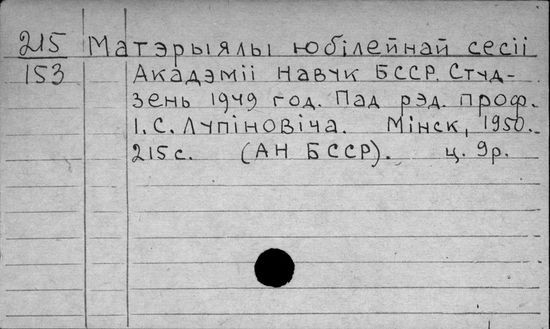 215 Матэрыялы юбілейнай сесіі
153 Акадэміі Навук БССР. Студ-
зень 1949 год. Пад рэд. проф.
І. С. Лупіновіча. Мінск, 1950.
215 с. (АН БССР). ц. 9р.